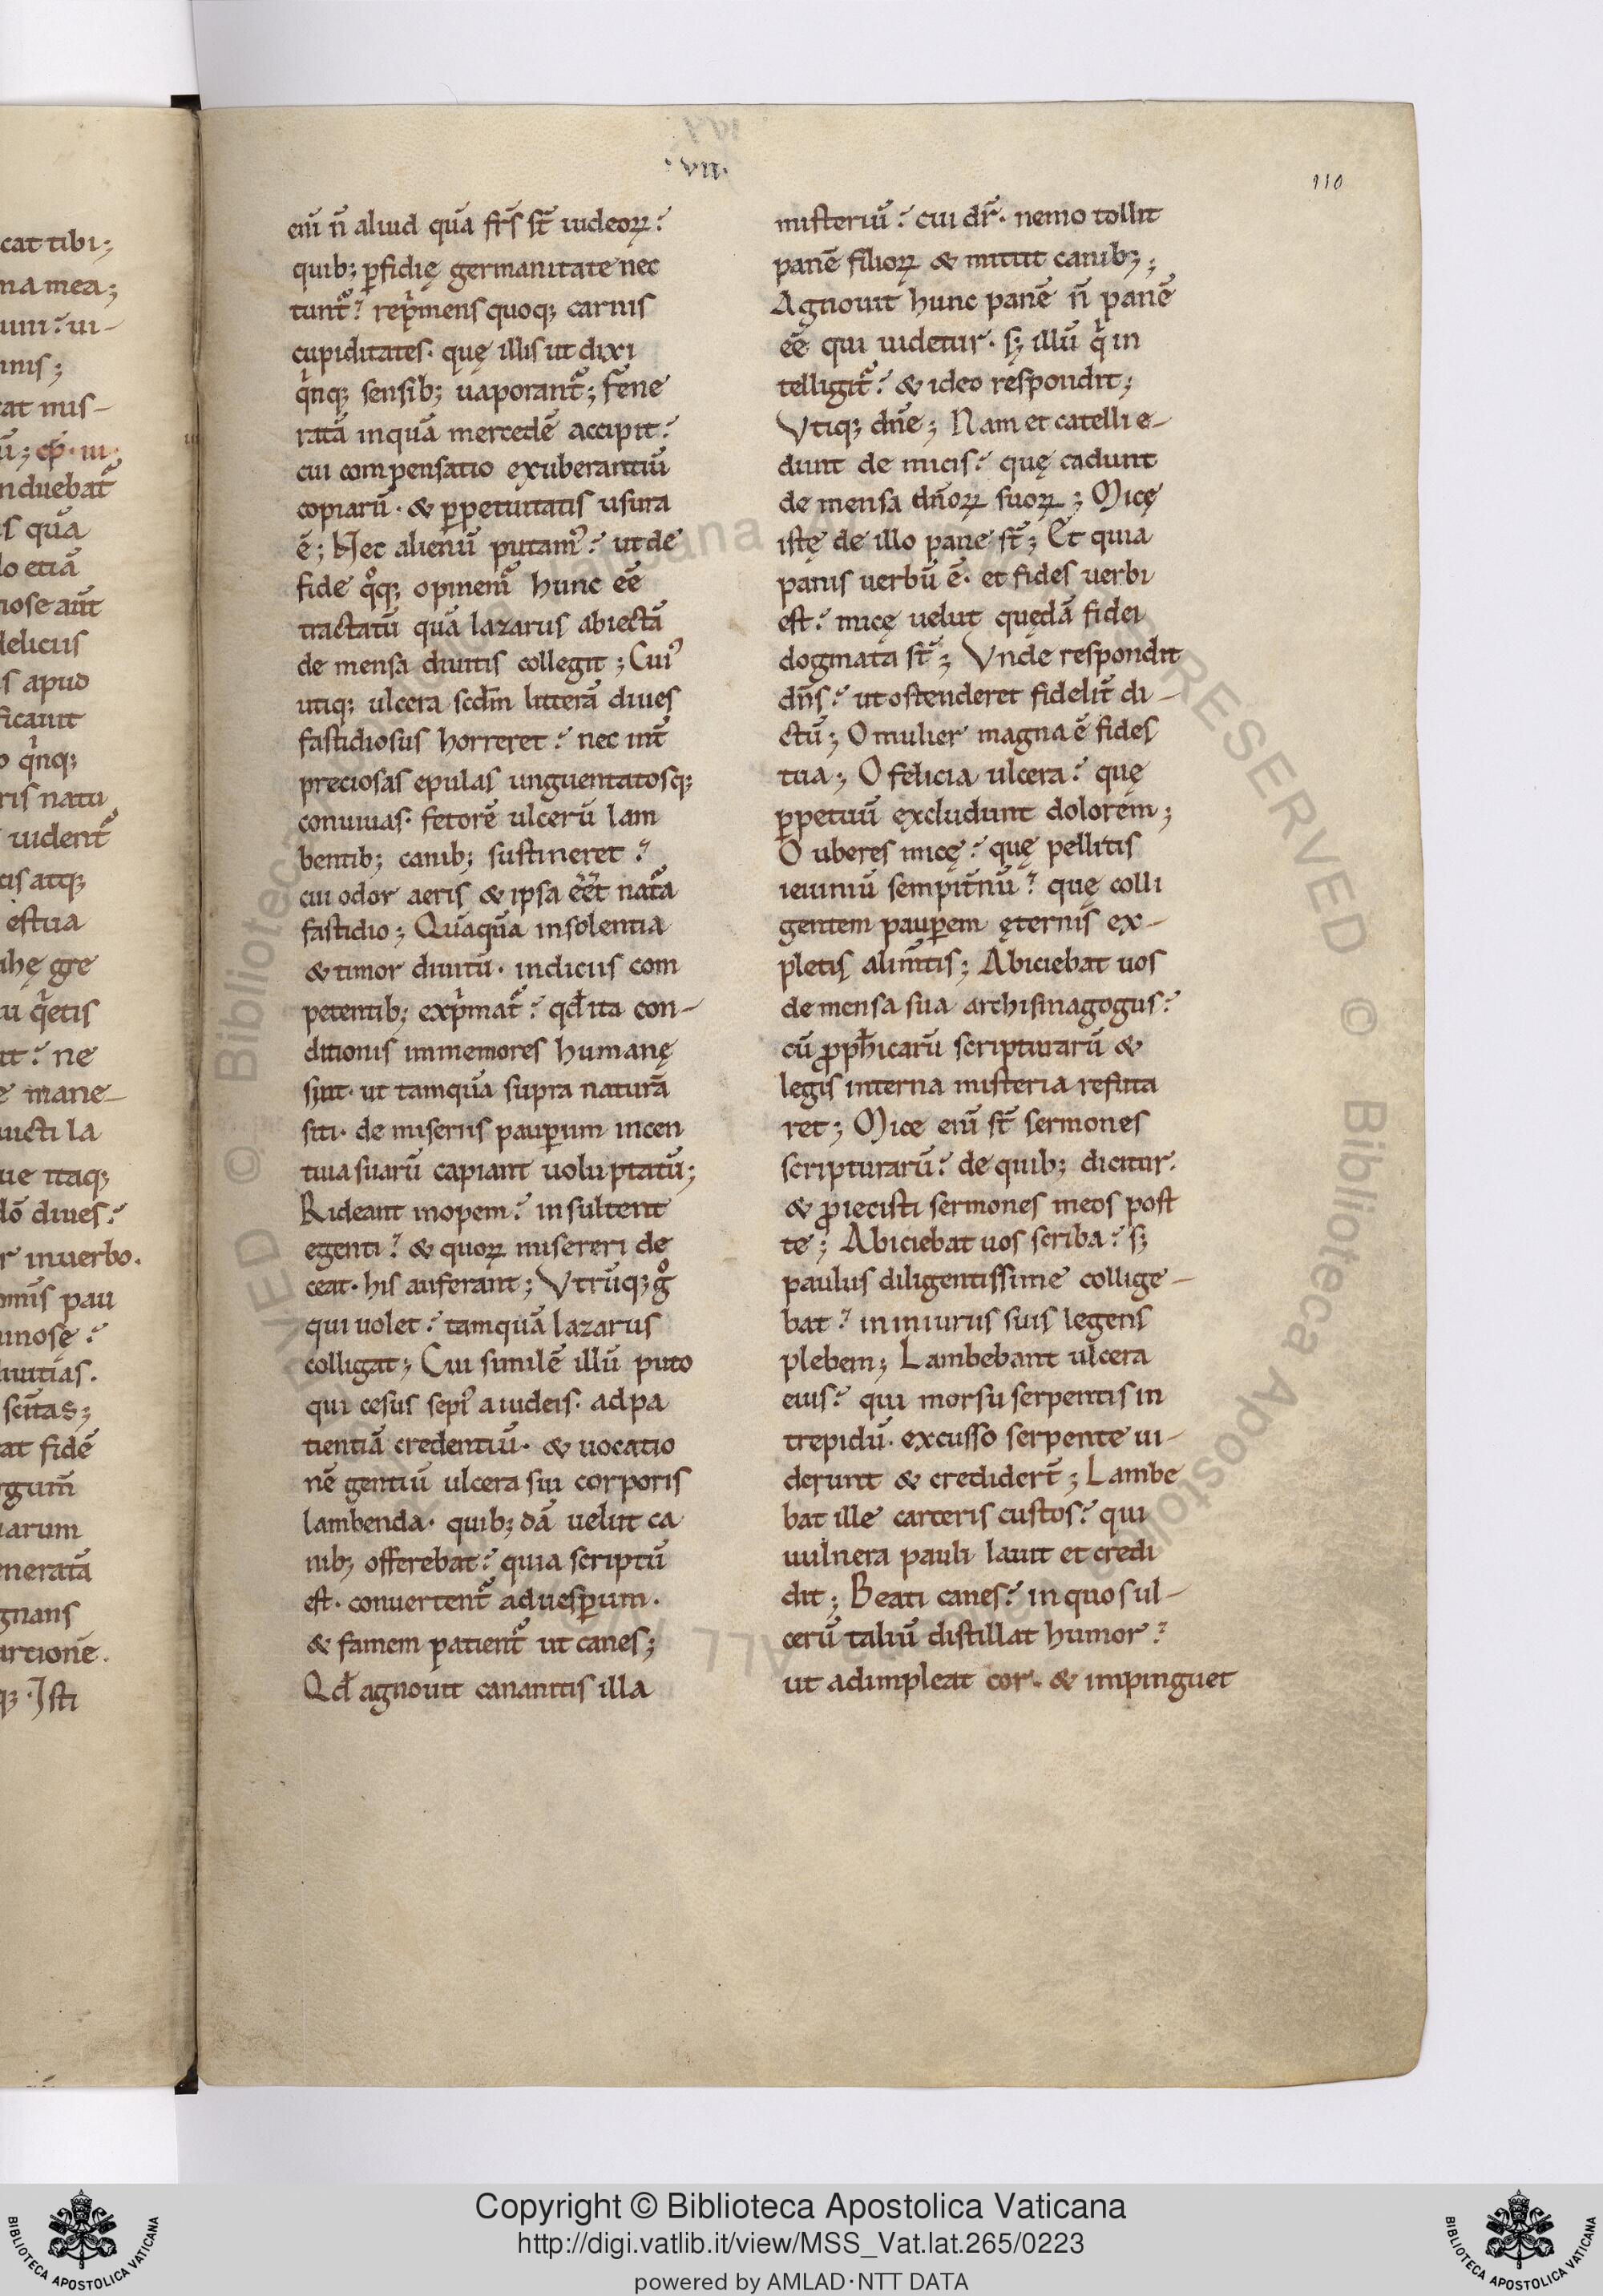 ·VII·
110
cat tibi;
na mea;
uim? ui-
inis;
cat mis-
ū; cp̄·iii·
nduebat̄
s quā
lo etiā
iose aūt
delicus
s apud
ficauit
o qͥnq;
ris natu
uident̄
tis atq;
estua
ihę gre
u qͥetis
tt? ne
e mane-
uicti la
ue itaq;
dō diues?
r inuerbo.
omīs pau
inosę?
iuitias.
scītas;
at fidē
rgum̄
arum
eneratā
gnans
artionē.
q; Isti
eni᷑ n̄ aliud quā fr̄s st̄ iudeoꝝ?
quib; ꝑfidię germanitate nec
tunt᷑? rep̍mens quoq; carnis
cupiditates· quę illis ut dixi
qͥnq; sensib; uaporant᷑; fene
ratā inquā mercedē accipit?
cui compensatio exuberantiū
copiarū· & ꝑpetuitatis usura
ē; Nec alienū putam᷒? ut de
fide qͦq; opinem᷑ hunc eē
tractatū quā lazarus abiectā
de mensa diuitis collegit; Cui᷒
utiq; ulcera scdm̄ litterā diues
fastidiosus horreret? nec int̄
preciosas epulas unguentatosq;
conuiuas· fetorē ulcerū lam
bentib; canib; sustineret?
cui odor aeris & ipsa eēt nat᷑a
fastidio; Quāquā insolentia
& timor diuitū· indiciis com
petentib; exp̍mat᷑? qđ ita con-
ditionis immemores humanę
sint· ut tamquā supra naturā
siti· de miseriis pauꝑum incen
tiua suarū capiant uoluptatū;
Rideant inopem? insultent
egenti? & quoꝝ misereri de
ceat· his auferant; Vtrūq; gͦ
qui uolet? tamquā lazarus
colligat; Cui similē illū puto
qui cesus sepi᷒ a iudeis· ad pa
tientiā credentiū· & uocatio
nē gentiū ulcera sui corporis
lambenda· quib; dā uelut ca
nib; offerebat? quia scriptū
est· conuertent᷑ ad uesꝑum·
& famem patient᷑ ut canes;
Qđ agnouit cananitis illa
misteriū? cui dr̄· nemo tollit
panē filioꝝ & mittit canib;;
Agnouit hunc panē n̄ panē
eē qui uidetur· s; illū qͥ in
telligit᷑? & ideo respondit;
Vtiq; dn̄e; Nam et catelli e-
dunt de micis? quę cadunt
de mensa dn̄oꝝ suoꝝ; Micę
istę de illo pane st̄; Et quia
panis uerbū ē· et fides uerbi
est? micę uelut quędā fidei
dogmata st̄; Vnde respondit
dn̄s? ut ostenderet fidelit̄ di-
ctū; O mulier magna ē fides
tua; O felicia ulcera? quę
ꝑpetuū excludunt dolorem;
O uberes micę? quę pellitis
ieiuniū sempit̄nū? quę colli
gentem pauꝑem ęternis ex-
pletis alim̄tis; Abiciebat uos
de mensa sua archisinagogus?
cū ꝓpħicarū scripturarū &
legis interna misteria refuta
ret; Mice eni᷑ st̄ sermones
scripturarū? de quib; dicitur·
& ꝓiecisti sermones meos post
te; Abiciebat uos scriba? s;
paulus diligentissime collige-
bat? in iniuriis suis legens
plebem; Lambebant ulcera
eius? qui morsu serpentis in
trepidū· excusso serpente ui-
derunt & credidert̄; Lambe
bat ille carceris custos? qui
uulnera pauli lauit et credi
dit; Beati canes? in quos ul-
cerū taliū distillat humor?
ut adimpleat cor· & impinguet
Copyright © Biblioteca Apostolica Vaticana
http://digi.vatlib.it/view/MSS_Vat.lat.265/0223
powered by AMLAD·NTT DATA
BIBLIOTECA APOSTOLICA VATICANA
BIBLIOTECA APOSTOLICA VATICANA